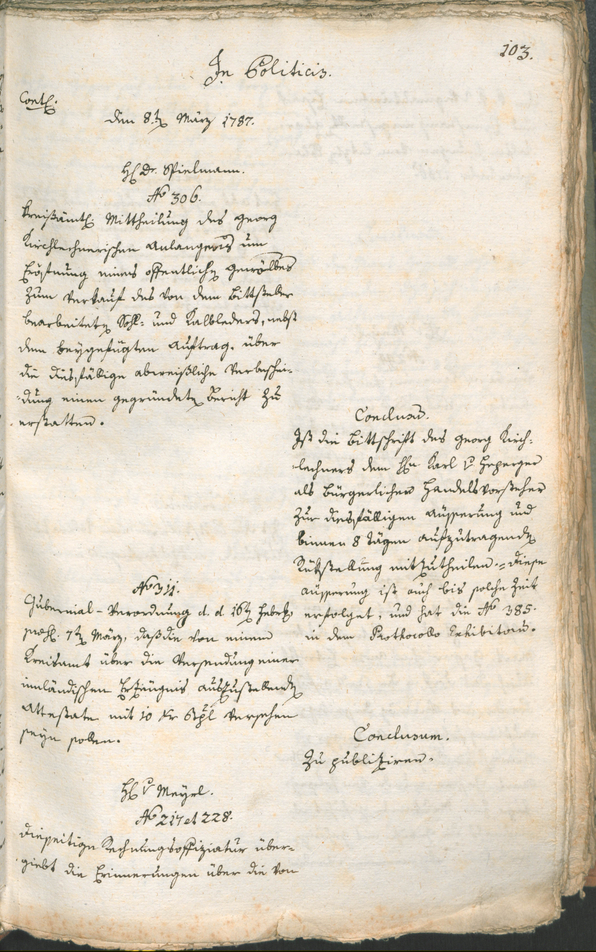 103.
In Politicis.
Conth:
den 8ten März 1787.
H: Dr. Spielmann.
No 306.
Kreißämtl: Mittheilung des Georg
Kirchlechnerischen Anlangens um
Eröfnung eines offentlichen Gewölbes
zum Verkauf des von dem Bittsteller
bearbeiteten Sohl- und Kalbleders, nebst
dem beygefügten Auftrag, über
die diesfällige abweißliche Verbeschei-
dung einen gegründeten Bericht zu
erstatten.
Conclusum.
Ist die Bittschrift des Georg Kirch-
lechners dem Hn Karl v Heperger
als bürgerlichen Handelsvorsteher
zur diesfälligen Äusserung und
binnen 8 Tägen aufzutragenden
Rükstellung mitzutheilen. = Diese
Äusserung ist auch bis solche Zeit
erfolget, und hat die No 385.
in dem Prothocollo Exhibitorum.
No 311.
Gubernial-Verordnung d. d. 16ten Hebr:
praes: 7ten März, daß die von einem
Kreisamt über die Versendung einer
innländischen Erzeugnis auszustellenden
Attestate mit 10 Kr Stpl versehen
seyn sollen.
Conclusum.
Zu publiziren.
H: v Meyel.
No 217 et 228.
Diesseitige Rechnungsoffiziatur über-
giebt die Erinnerungen über die von